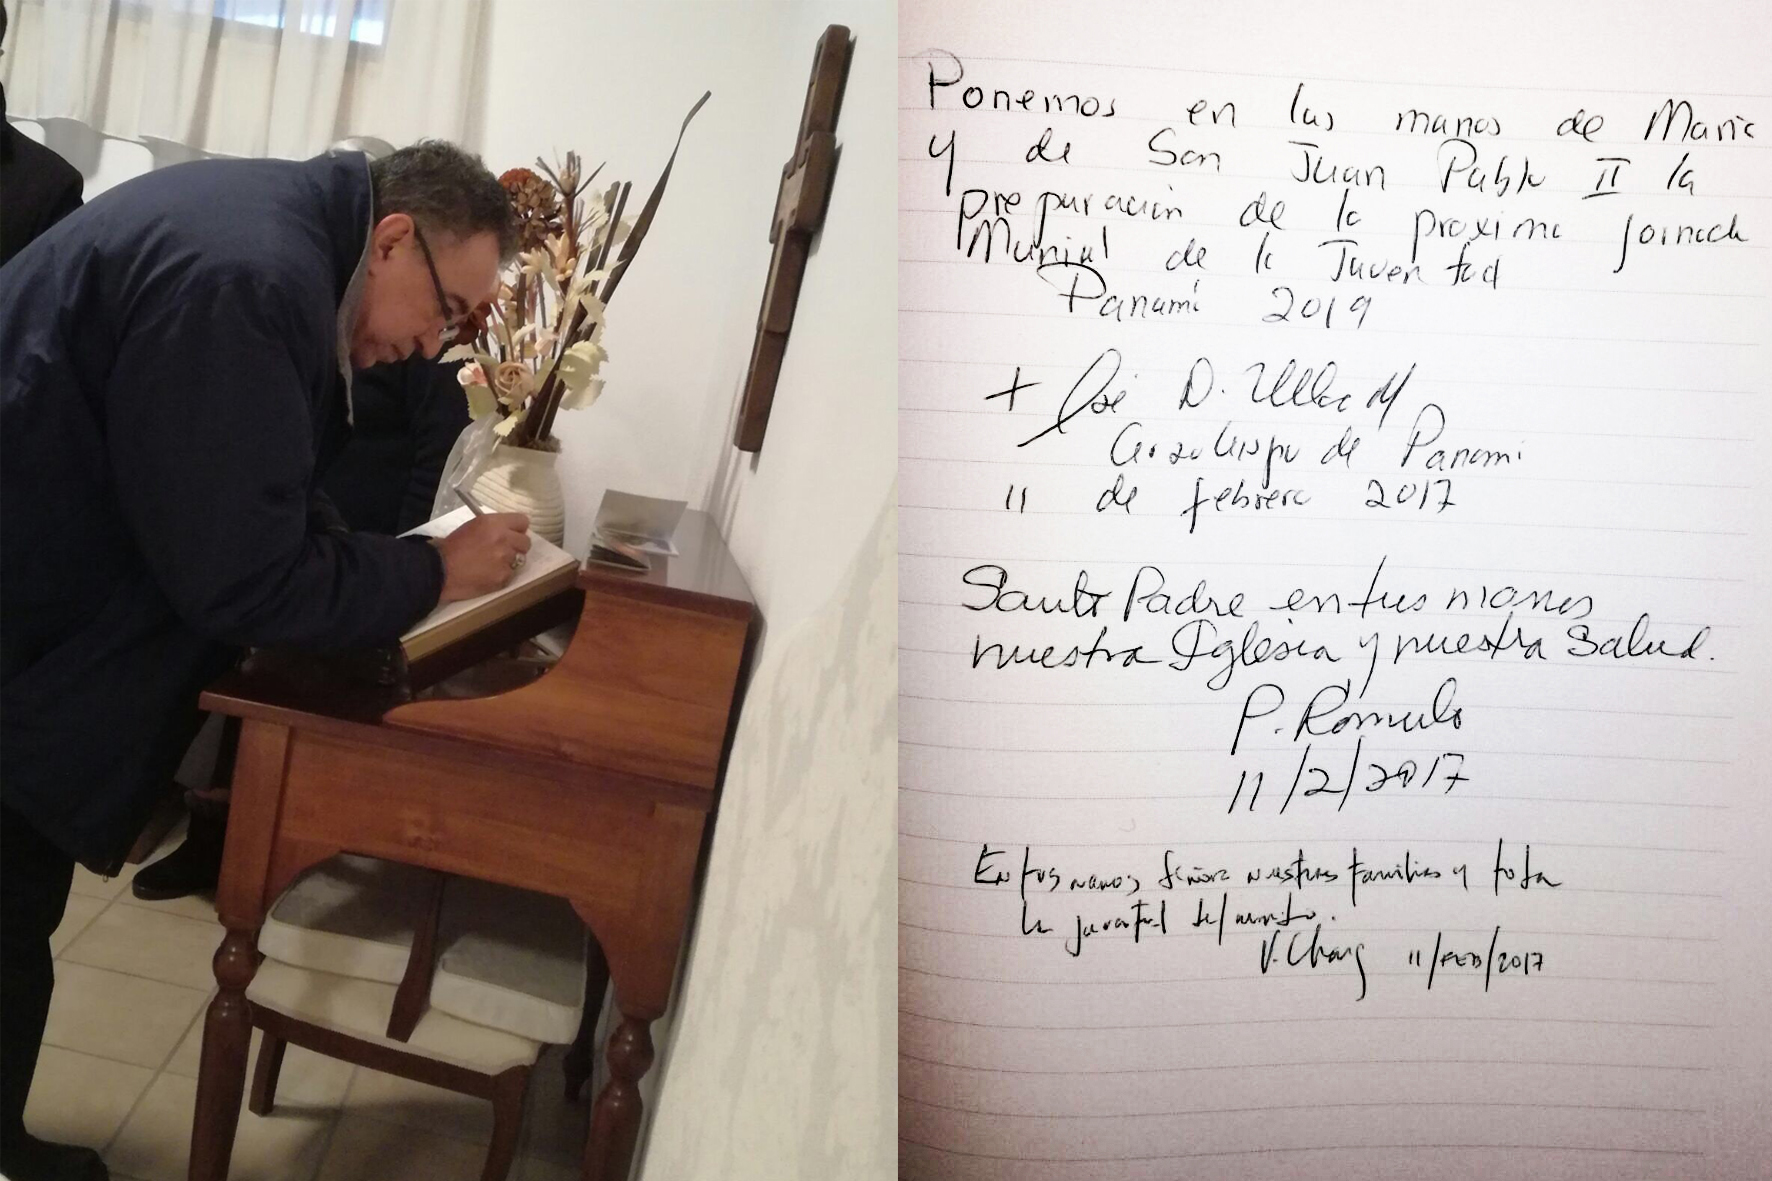 Ponemos en las manos de María
y de San Juan Pablo II la
preparación de la proxima Jornada
Munial de la Juventud
Panamá 2019
+ José D. Ulloa M
Arzobispo de Panamá
11 de febrero 2017
Santo Padre en tus manos
nuestra Iglesia y nuestra Salud.
P. Rómulo
11/2/2017
En tus manos Señora nuestras familias y toda
la juventud del mundo.
V. Chang 11/FEB/2017